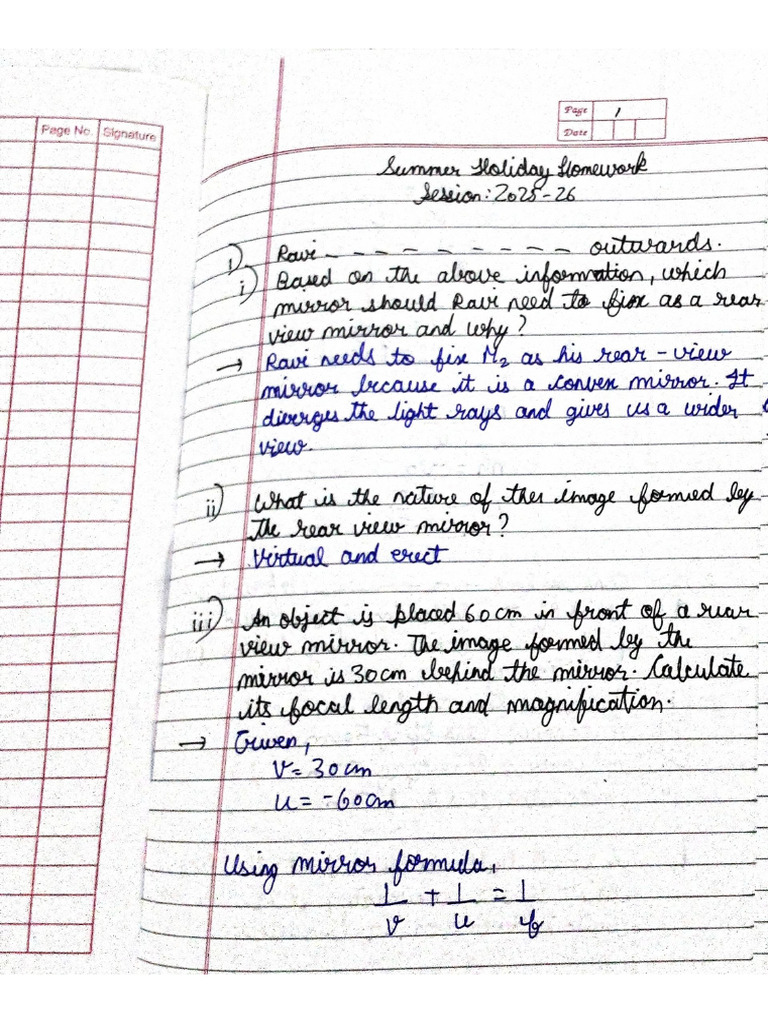 Page No. Signature
Page 1
Date
Summer Holiday Homework
Session: 2025-26
1) Ravi _ _ _ _ _ _ _ _ _ outwards.
i) Based on the above information, which
mirror should Ravi need to fix as a rear
view mirror and why?
→ Ravi needs to fix M₂ as his rear-view
mirror because it is a convex mirror. It
diverges the light rays and gives us a wider
view.
ii) What is the nature of the image formed by
the rear view mirror?
→ Virtual and erect
iii) An object is placed 60cm in front of a rear
view mirror. The image formed by the
mirror is 30cm behind the mirror. Calculate
its focal length and magnification.
→ Given,
v = 30cm
u = -60cm
Using mirror formula,
1/v + 1/u = 1/f